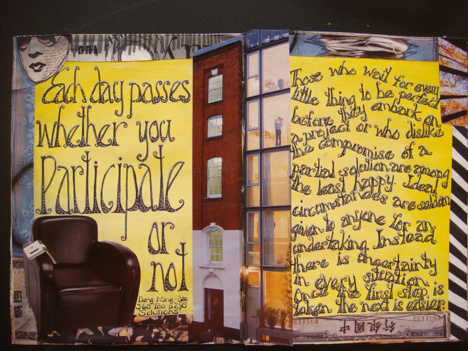 Each day passes
whether you
Participate
or
not
Deng Ming-Dao
365 Tao
Those who wait for every
little thing to be perfect
before they embark on
a project or who dislike
the compromise of a
partial solution are among
the least happy. Ideal
circumstances are seldom
given to anyone for any
undertaking. Instead
there is uncertainty
in every situation.
Once the first step is
taken the next is easier.